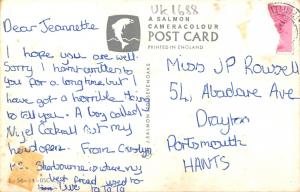 UK1688
Dear Jeannette
A SALMON
CAMERACOLOUR
POST CARD
PRINTED IN ENGLAND
I hope you are well.
Sorry I havnt written to
you for a long time but I
have got a horrible thing
to tell you. A boy called
Nigel Cockrall cut my
head open. From
Sherbourne is where my
best friend used to
live
Miss JP Rowsell
54, Abadare Ave
Drayton
Portsmouth
HANTS